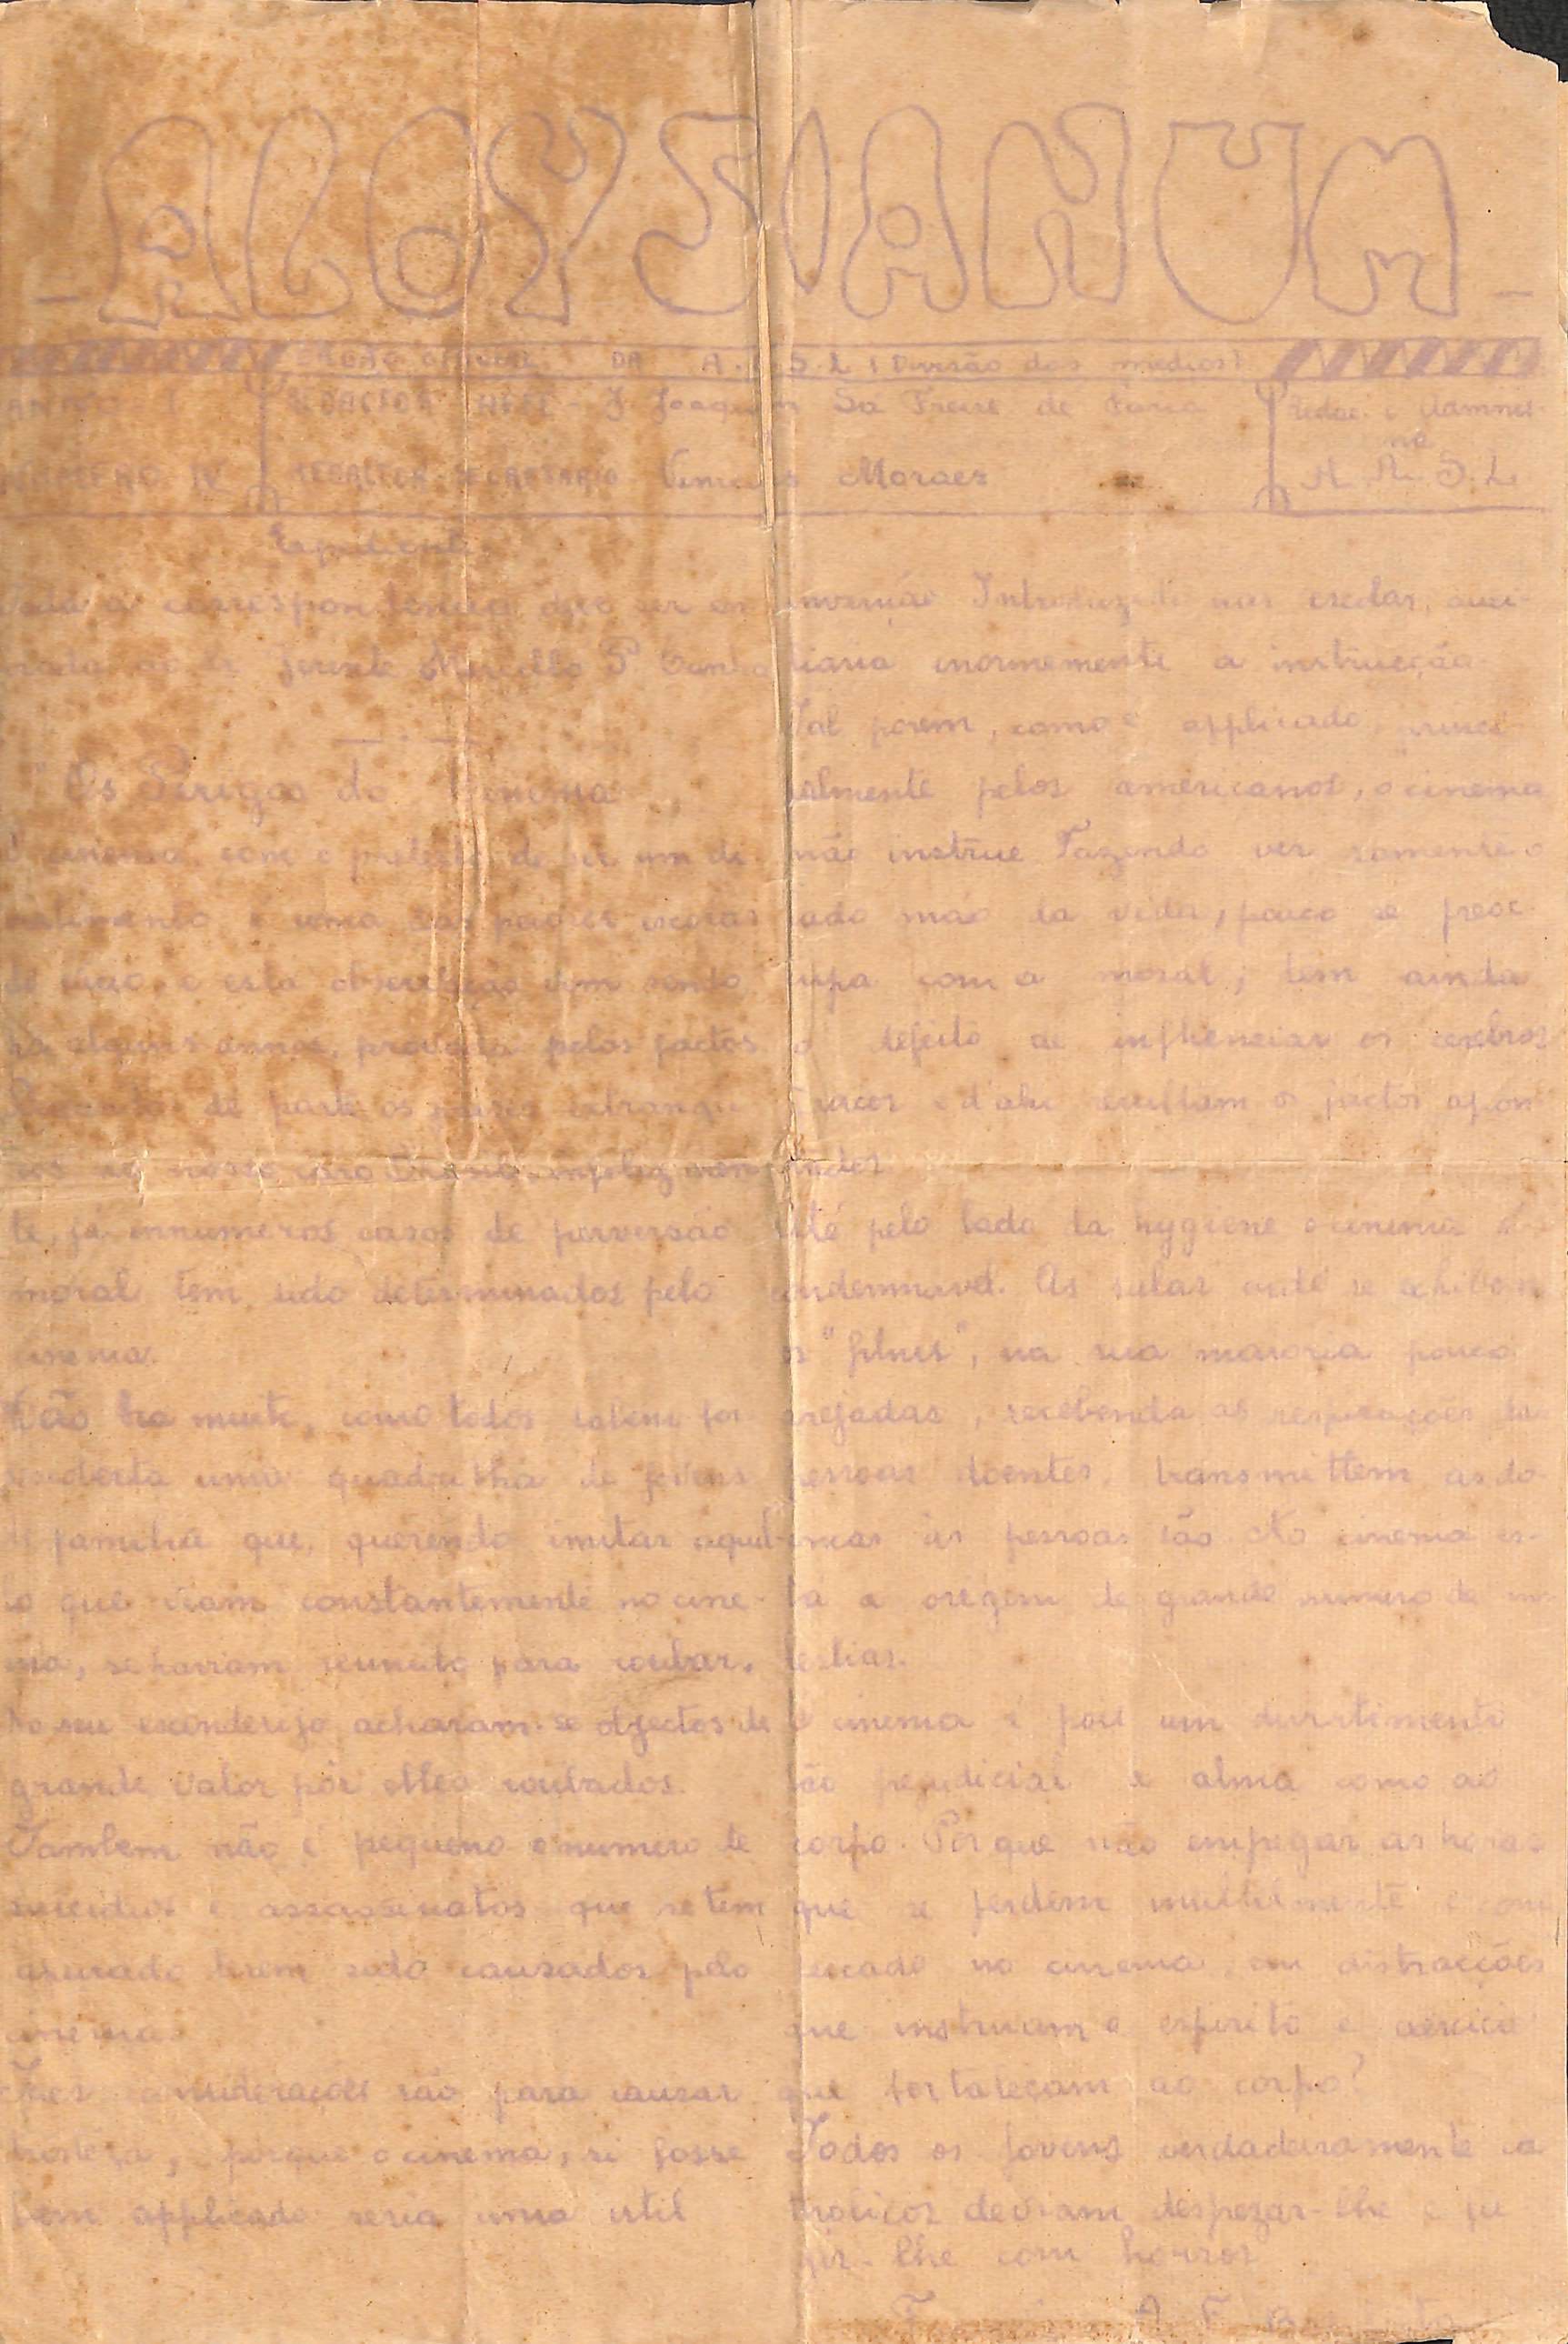 - ALOYSIANUM -
ORGÃO OFFICIAL DA A. A. S. L. (Divisão dos medios)
ANNO I
NUMERO IV
REDACTOR CHEFE - J. Joaquim Sá Freire de Faria
REDACTOR-SECRETARIO Vinicius Moraes
Redac. e Adminis-
na
A. A. S. L.
Expediente
Toda a correspondencia deve ser en
ao sr. gerente Marcello P. Cunha
"Os Perigos do Cinema"
O cinema, com o pretexto de ser um di-
vertimento é uma das peiores escolas
do vicio, e esta observação vem sendo
ha alguns annos, provada pelos factos.
de parte os paizes extrangei
ros no nosso caro Brasil, infelizmen
te, já innumeros casos de perversão
moral tem sido determinados pelo
cinema.
Não ha muito, como todos sabem foi
descoberta uma quadrilha de jovens
de familia que, querendo imitar aquil-
lo que viam constantemente no cine-
ma, se haviam reunido para roubar.
No seu esconderijo acharam-se objectos de
grande valor por elles roubados.
Tambem não é pequeno o numero de
suicidios e assassinatos que se tem
apurado terem sido causados pelo
cinema.
Taes considerações são para causar
tristeza, porque o cinema, si fosse
bem applicado seria uma util
invenção. Introduzido nas escolas, auxi-
liaria enormemente a instrucção.
Tal porem, como é applicado, princi
palmente pelos americanos, o cinema
não instrue. Fazendo ver somente o
lado mão da vida, pouco se preoc-
cupa com a moral; tem ainda
o defeito de influenciar os cerebros
fracos e d'ahi resultam os factos apon
tados.
Até pelo lado da hygiene o cinema é
condemnavel. As salas onde se exhibem
os "films", na sua maioria pouco
arejadas, recebendo as respirações das
pessoas doentes, transmittem as do-
enças ás pessoas sãs. No cinema es-
tá a origem de grande numero de mo
lestias.
O cinema é pois um divertimento
tão prejudicial á alma como ao
corpo. Por que não empegar as horas
que se perdem inutilmente e com
peccado no cinema, em distracções
que instruam o espirito e exercicio
que fortaleçam ao corpo?
Todos os jovens verdadeiramente ca
tholicos deviam desprezar-lhe e fu
gir-lhe com horror.
A. F.